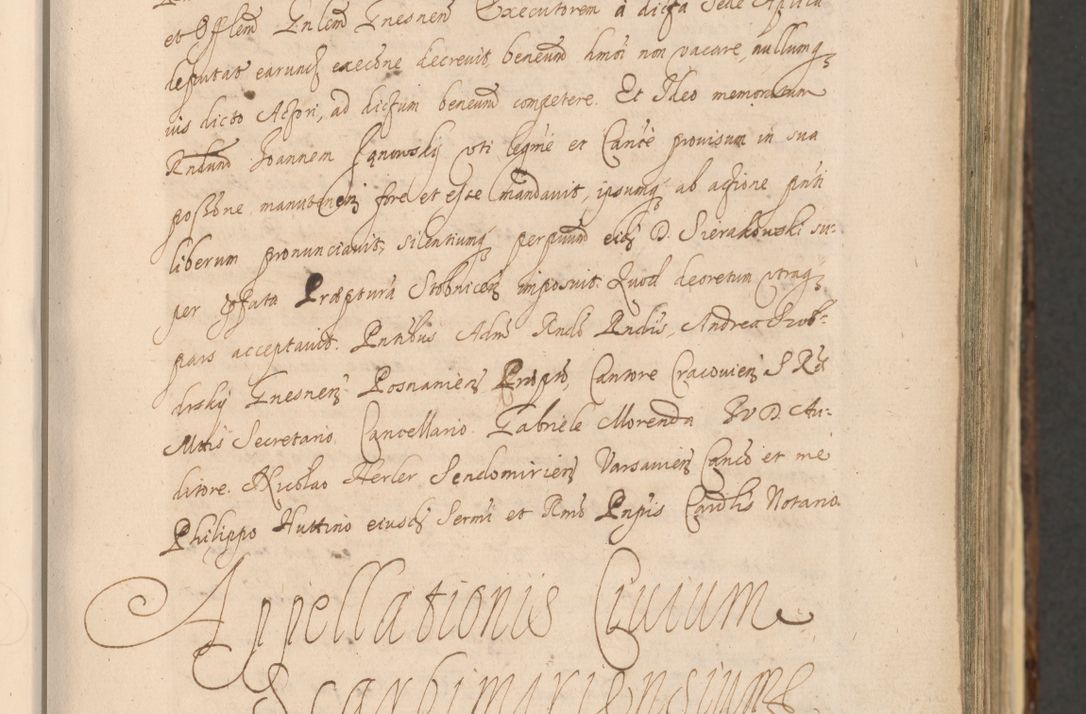 et Offlem Gnlem Gnesnen Executorem à dicta Sede Aplica
deputat earunq execõne decrevit, beneum hmoi non vacare, nullumq
ius dicto Actori, ad dictum beneum competere. Et Ideo memoratum
Rndum Joannem Janowsky uti legme et Cance provisum in sua
possone manutenen fore et esse mandavit, ipsumq ab actione pnti
liberum pronunciavit, silentiumq perpuum eid D. Sierakowski su:
per pfata Præptura Stobnicen imposuit. Quod decretum utraq
pars acceptavit. Pntibus Adm Rndo Rndis, Andrea Szol:
drsky Gnesnen Posnanien Præpto, Cantore Cracovien S R
Mtis Secretario Cancellario. Gabriele Morenda JVD Au:
ditore. Nicolao Herler Sendomirien Varsavien Canco et me
Philippo Huttino eiusd Sermi et Rmi Pnpis Cardlis Notario.
Appellationis Civium
Scarbimiriensium